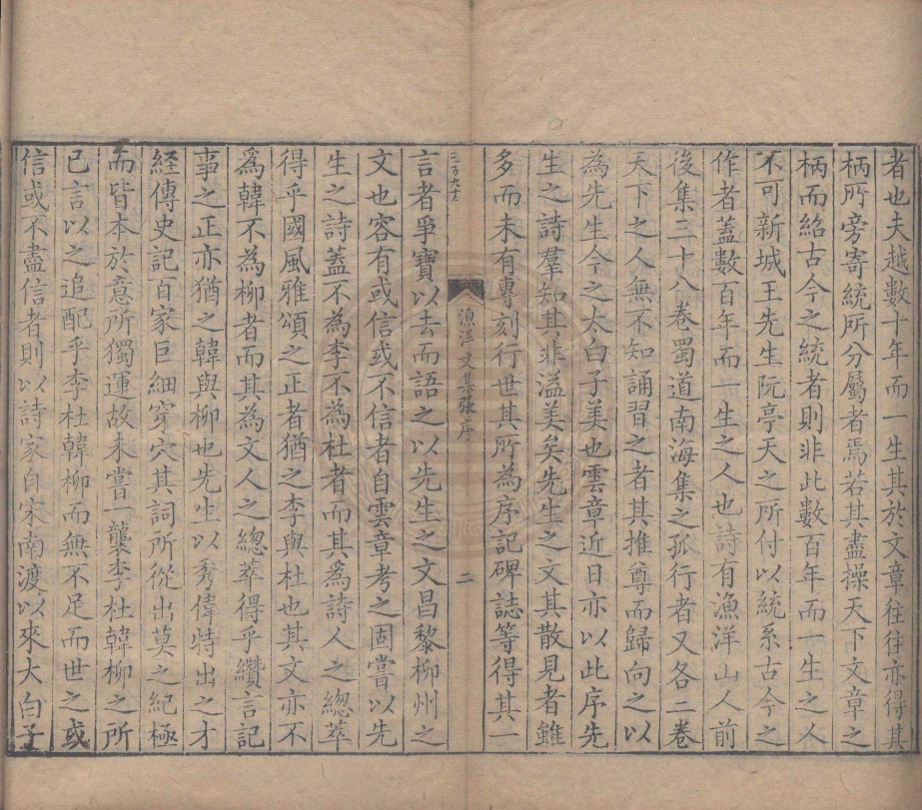 者也夫越數十年而一生其於文章往往亦得其
柄所旁寄統所分屬者焉若其盡操天下文章之
柄而紹古今之統者則非此數百年而一生之人
不可新城王先生阮亭天之所付以統系古今之
作者蓋數百年而一生之人也詩有漁洋山人前
後集三十八卷蜀道南海集之孤行者又各二卷
天下之人無不知誦習之者其推尊而歸向之以
為先生今之太白子美也雲章近日亦以此序先
生之詩羣知其非溢美矣先生之文其散見者雖
多而未有專刻行世其所為序記碑誌等得其一
漁洋文集張序
二
言者爭寶以去而語之以先生之文昌黎柳州之
文也容有或信或不信者自雲章考之固嘗以先
生之詩蓋不為李不為杜者而其爲詩人之總萃
得乎國風雅頌之正者猶之李與杜也其文亦不
爲韓不為柳者而其為文人之總萃得乎纘言記
事之正亦猶之韓與柳也先生以秀偉特出之才
經傳史記百家巨細穿穴其詞所從出莫之紀極
而皆本於意所獨運故未嘗一襲李杜韓柳之所
已言以之追配乎李杜韓柳而無不足而世之或
信或不盡信者則以詩家自宋南渡以來大白子